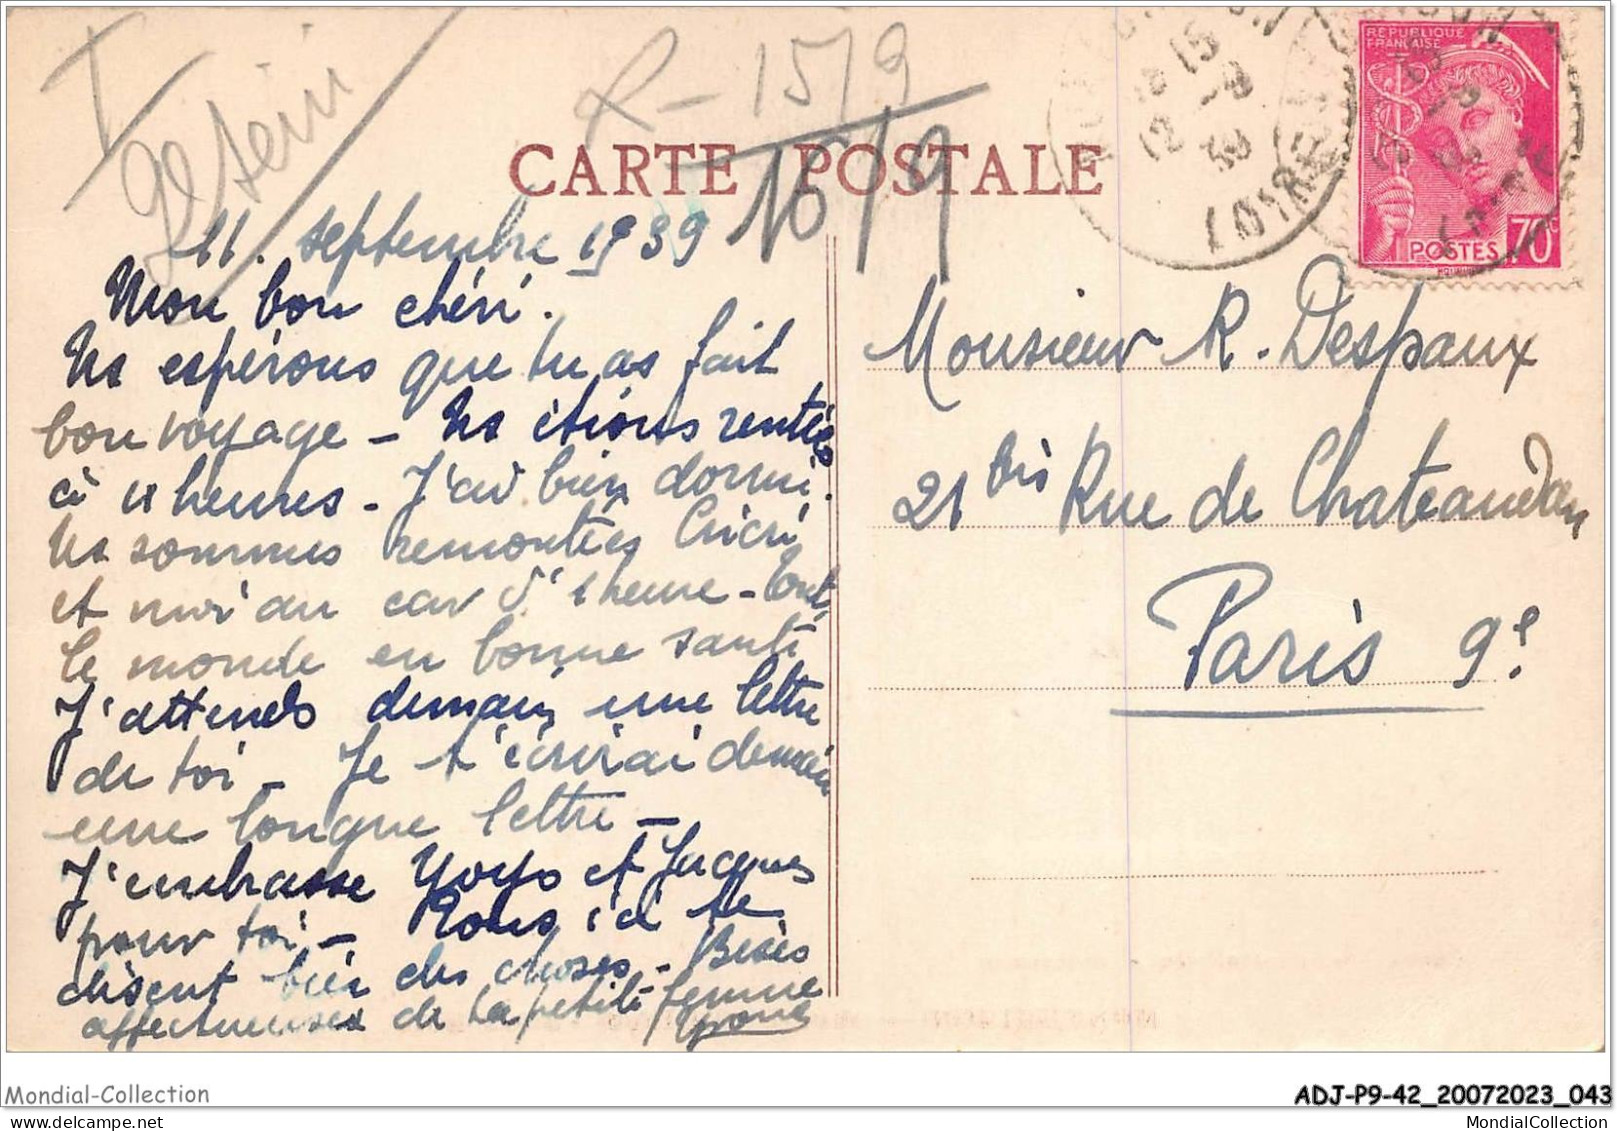 R - 15/9
CARTE POSTALE
16/9
RÉPUBLIQUE
FRANÇAISE
POSTES 70c
12 15
LOIRE
11. septembre 1939
Mon bon chéri.
Ns espérons que tu as fait
bon voyage - Ns étions rentrées
à 11 heures - J'ai bien dormi.
Ns sommes remontées Cricri
et moi au car d'1 heure - Tout
le monde en bonne santé
J'attends demain une lettre
de toi - Je t'écrirai demain
une longue lettre -
J'embrasse Yoyo et Jacques
pour toi - Tous ici te
disent bien des choses - Bises
affectueuses de ta petite femme
Yvonne
Monsieur R. Despaux
21 bis Rue de Chateaudun
Paris 9e
Mondial-Collection
ADJ-P9-42_20072023_043
MondialCollection